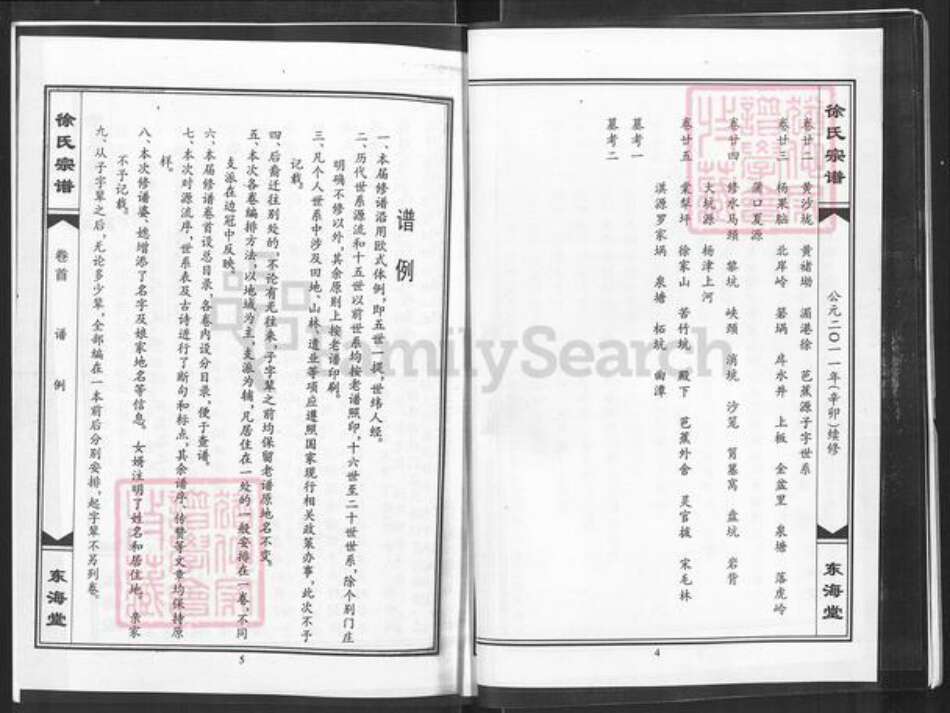 徐氏宗谱
公元二〇一一年(辛卯)续修
东海堂
卷廿二 黄沙垅 黄褚坳 湄港徐 芭蕉源子字世系
卷廿三 杨果脑 北岸岭 箬埚 库水井 上板 金盆里 泉塘 落虎岭
蒲口夏源
卷廿四 修水马颈 黎坑 峡颈 消坑 沙笼 筲墓窝 盘坑 岩背
大坑源 杨津上河
卷廿五 棠梨坪 徐家山 苦竹坑 殿下 芭蕉外舍 灵官 宋毛林
漠源罗家埚 泉塘 柘坑 幽潭
墓考一
墓考二
4
谱例
一、本届修谱沿用欧式体例,即五世一提,世纬人经。
二、历代世系源流和十五世以前世系均按老谱照印,十六世至二十世世系,除个别门庄
明确不修以外,其余原则上按老谱印刷。
三、凡个人世系中涉及田地、山林、遗业等项应遵照国家现行相关政策办事,此次不予
记载。
四、后裔迁往别处的,不论有无往来,子字辈之前均保留老谱原地名不变。
五、本次各卷编排方法,以地域为主,支派为辅,凡居住在一处的一般安排在一卷,不同
支派在边冠中反映。
六、本届修谱卷首设总目录,各卷内设分目录,便于查谱。
七、本次对源流序,世系表及古诗进行了断句和标点,其余谱序、传赞等文章均保持原
样。
八、本次修谱婆、媳增添了名字及娘家地名等信息。女婿注明了姓名和居住地。亲家
不予记载。
九、从子字辈之后,无论多少辈,全部编在一本前后分别安排,起字辈不另列卷。
徐氏宗谱
卷首 谱例
东海堂
5
FamilySearch